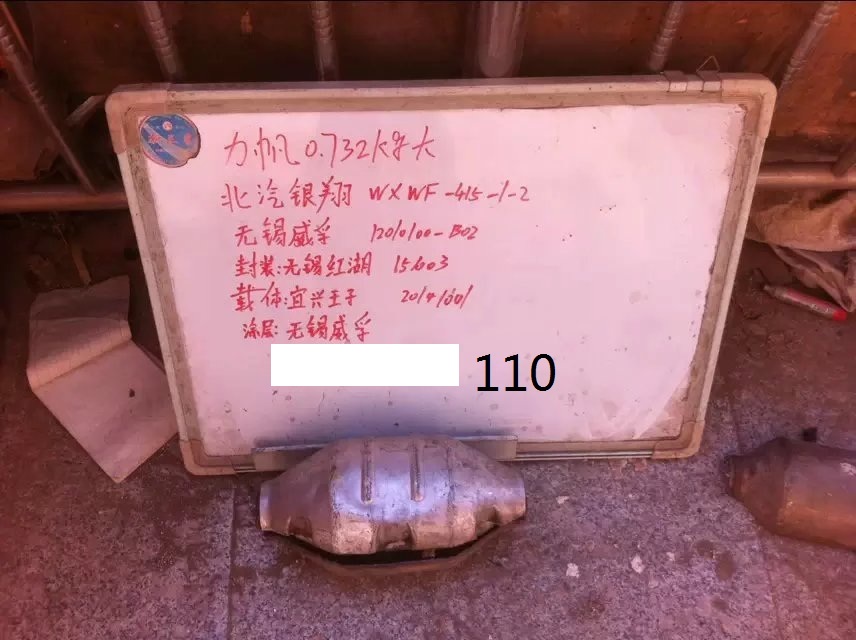 力帆0.732kg大
北汽银翔 WXWF-415-1-2
无锡威孚 1200100-B02
封装:无锡红湖 15.603
载体:宜兴王子 2014/001
涂层:无锡威孚
110